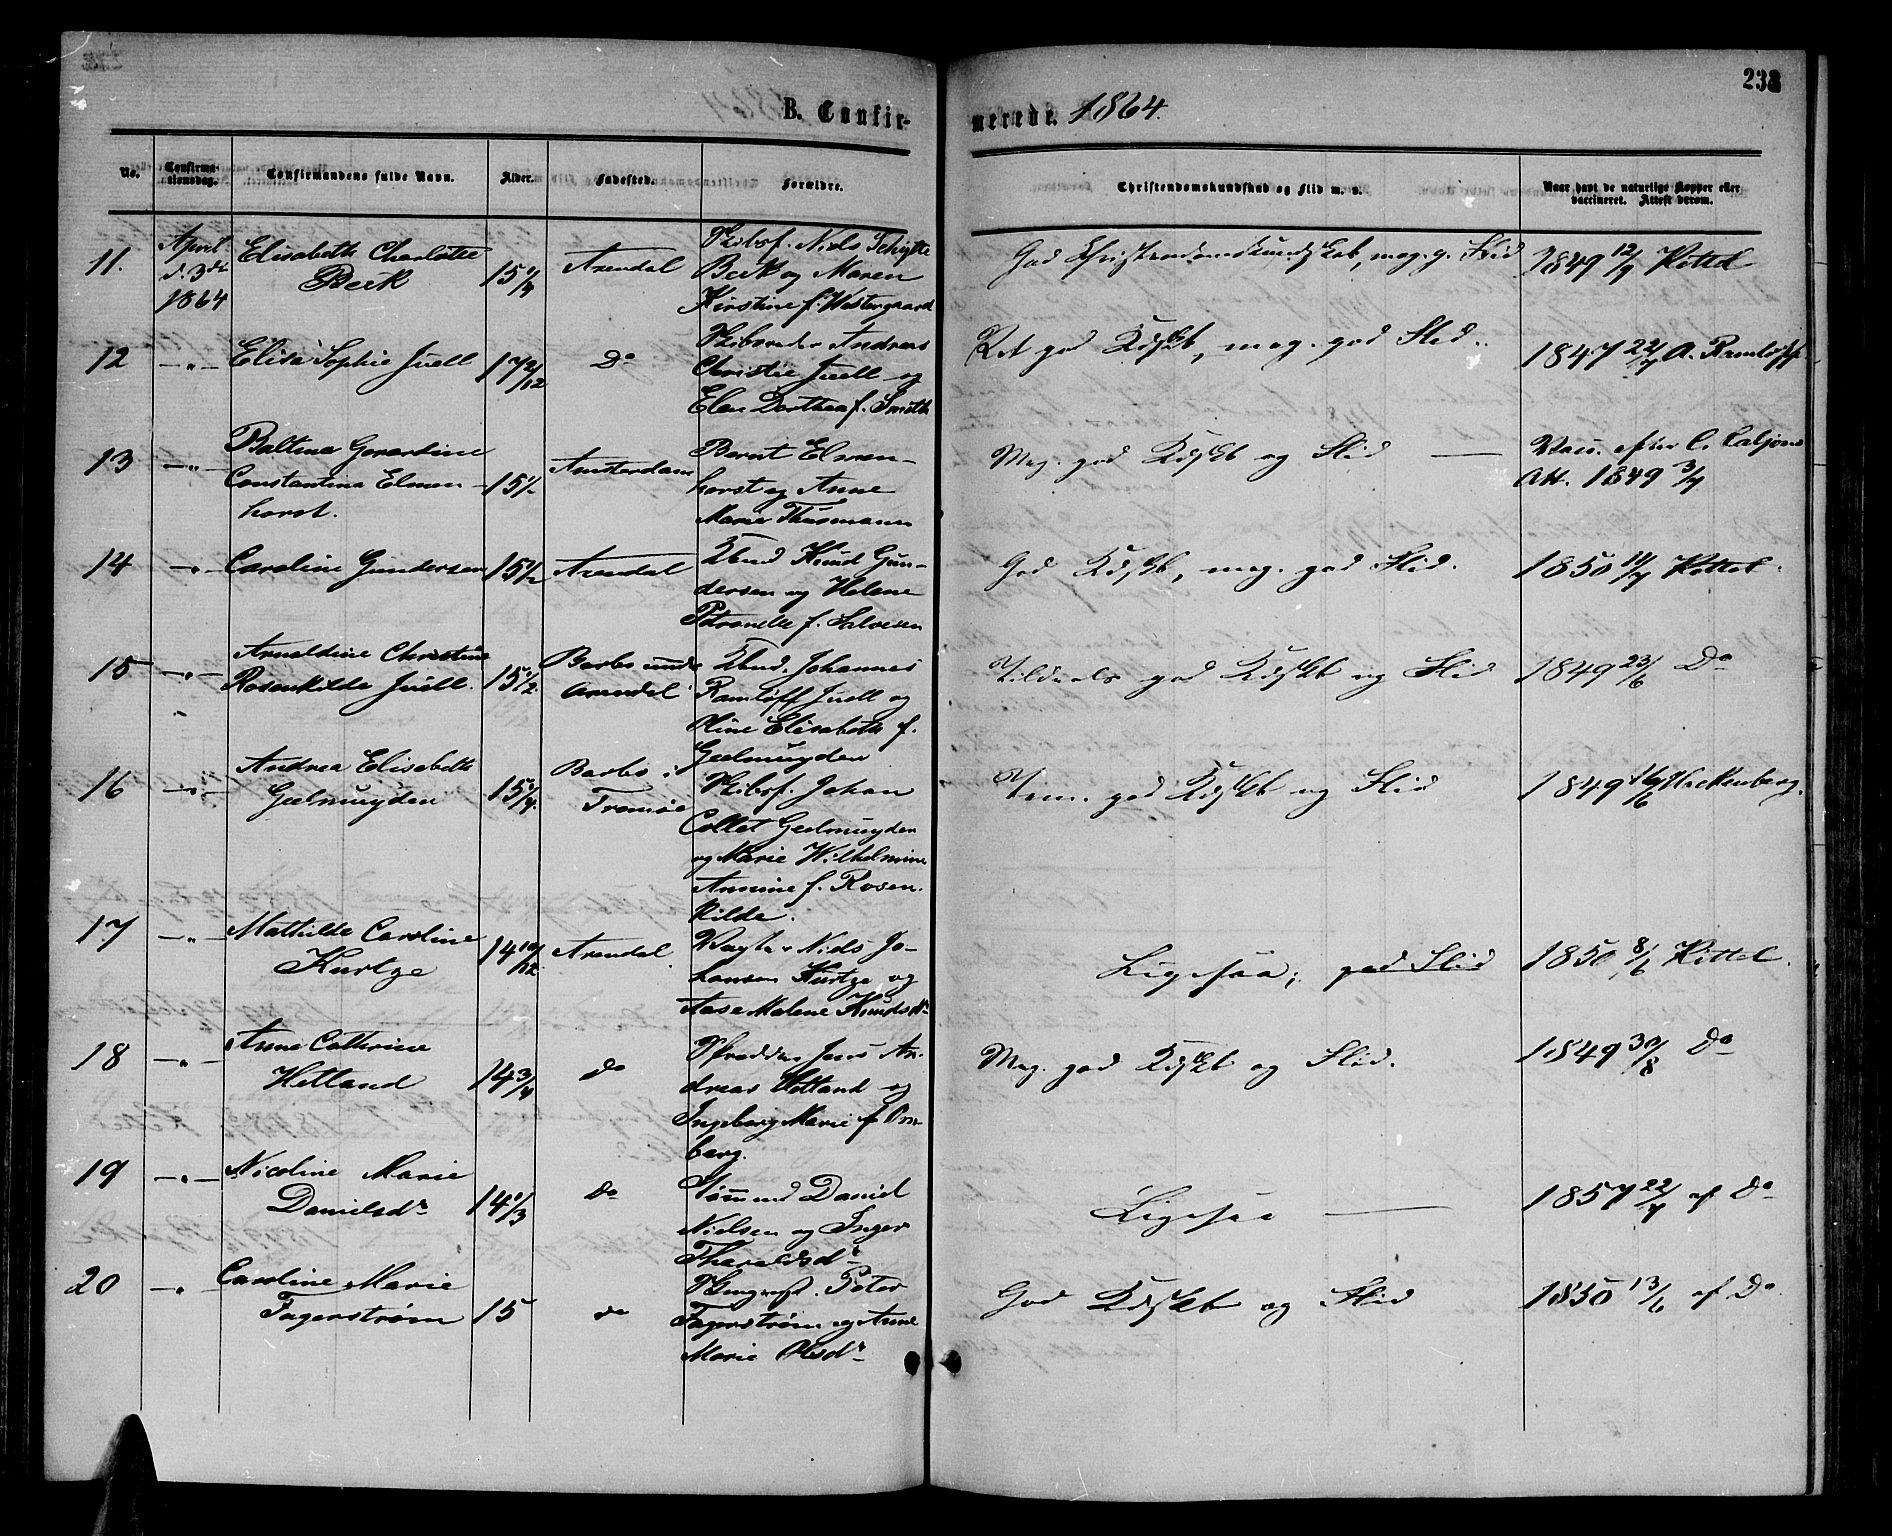 238
B. Confir-
merede. 1864.
No.
Confirma-
tionsdag.
Confirmandens fulde Navn.
Alder.
Fødested.
Forældre.
Christendomskundskab og Flid m. v.
Naar havt de naturlige Kopper eller
vaccineret. Attest derom.
11.
April
d. 3die
1864
Elisabeth Charlotte
Beck
15 1/4
Arendal
Skibsf. Niels Schytte
Beck og Maren
Kirstine f. Westergaard
God Christendomskundskab, meg. g. Flid
1849 12/9 Kittel
12
–"–
Elisa Sophie Juell
17 2/12
Do
Skibsreder Andreas
Christie Juell og
Elen Dorthea f. Smith
Ret god Kdskb, meg. god Flid.
1847 22/7 A. Ramløff
13
–"–
Baltina Gerardine
Constantina Elmen-
horst.
15 1/2
Amsterdam
Bernt Elmen-
horst og Anne
Marie Thusmann
Meg. god Kdskb og Flid —
Vacc. efter C.
Att. 1849 3/7
14
–"–
Caroline Gundersen
15 1/2
Arendal
Knud Gun-
dersen og Helene
Petronelle f. Salvesen
God Kdskb, meg. god Flid.
1850 14/7 Kittel.
15
–"–
Arnoldine Christine
Rosenkilde Juell.
15 1/2
Barbo
Arendal
Johannes
Ramløff Juell og
Oline Elisabeth f.
Geelmuyden
god Kdskb og Flid
1849 23/6 Do
16
–"–
Andrea Elisabeth
Geelmuyden
15 1/4.
Barbo i
Tromøe
Skibsf. Johan
Collet Geelmuyden
og Marie Wilhelmine
Annine f. Rosen-
kilde.
god Kdskb og Flid
1849 16/6 Hackenberg.
17
–"–
Mathilde Caroline
Kurtze
14 10/12
Arendal
Vægter Niels Jo-
hansen Kurtze og
Aase Malene Knudsdr
Ligesaa; god Flid
1850 8/6 Kittel.
18
–"–
Anne Cathrine
Hetland
14 3/4
do
Jens An-
dreas Hetland og
Ingeborg Marie f.
berg.
Meg. god Kdskb og Flid.
1849 30/8 Do
19
–"–
Nicoline Marie
Danielsdr
14 1/3
Do
Tømmermd Daniel
Nielsen og Inger
Tharaldsdr
Ligesaa —
1857 22/7 af Do
20
–"–
Caroline Marie
Fagerstrøm
15
do
Peter
Fagerstrøm og Anne
Marie Olsdr
God Kdskb og Flid
1850 13/6 af Do